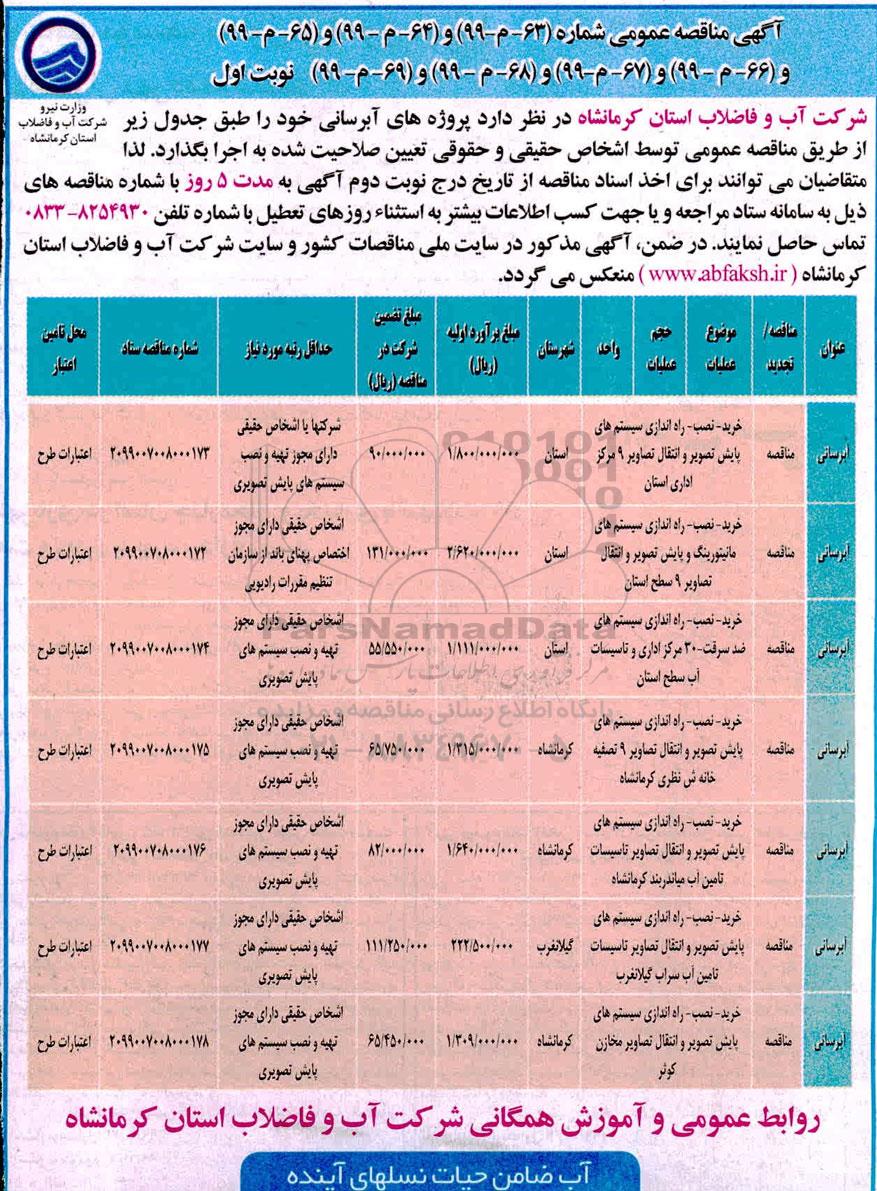 آگهی مناقصه عمومی شماره (۶۳-م-۹۹) و (۶۴-م-۹۹) و (۶۵-م-۹۹)
و (۶۶-م-۹۹) و (۶۷-م-۹۹) و (۶۸-م-۹۹) و (۶۹-م-۹۹) نوبت اول
وزارت نیرو
شرکت آب و فاضلاب
استان کرمانشاه
شرکت آب و فاضلاب استان کرمانشاه در نظر دارد پروژه های آبرسانی خود را طبق جدول زیر
از طریق مناقصه عمومی توسط اشخاص حقیقی و حقوقی تعیین صلاحیت شده به اجرا بگذارد. لذا
متقاضیان می توانند برای اخذ اسناد مناقصه از تاریخ درج نوبت دوم آگهی به مدت ۵ روز با شماره مناقصه های
ذیل به سامانه ستاد مراجعه و یا جهت کسب اطلاعات بیشتر به استثناء روزهای تعطیل با شماره تلفن ۸۲۵۴۹۳۰-۰۸۳۳
تماس حاصل نمایند. در ضمن، آگهی مذکور در سایت ملی مناقصات کشور و سایت شرکت آب و فاضلاب استان
کرمانشاه (www.abfaksh.ir) منعکس می گردد.
عنوان | مناقصه/ تجدید | موضوع عملیات | حجم عملیات | واحد | شهرستان | مبلغ برآورد اولیه (ریال) | مبلغ تضمین شرکت در مناقصه (ریال) | حداقل رتبه مورد نیاز | شماره مناقصه ستاد | محل تامین اعتبار
آبرسانی | مناقصه | خرید- نصب- راه اندازی سیستم های پایش تصویر و انتقال تصاویر ۹ مرکز اداری استان | استان | ۱/۸۰۰/۰۰۰/۰۰۰ | ۹۰/۰۰۰/۰۰۰ | شرکتها یا اشخاص حقیقی دارای مجوز تهیه و نصب سیستم های پایش تصویری | ۲۰۹۹۰۰۷۰۰۸۰۰۰۱۷۳ | اعتبارات طرح
آبرسانی | مناقصه | خرید- نصب- راه اندازی سیستم های مانیتورینگ و پایش تصویر و انتقال تصاویر ۹ سطح استان | استان | ۲/۶۲۰/۰۰۰/۰۰۰ | ۱۳۱/۰۰۰/۰۰۰ | اشخاص حقیقی دارای مجوز اختصاص پهنای باند از سازمان تنظیم مقررات رادیویی | ۲۰۹۹۰۰۷۰۸۰۰۰۱۷۲ | اعتبارات طرح
آبرسانی | مناقصه | خرید- نصب- راه اندازی سیستم های ضد سرقت-۳۰ مرکز اداری و تاسیسات آب سطح استان | استان | ۱/۱۱۱/۰۰۰/۰۰۰ | ۵۵/۵۵۰/۰۰۰ | اشخاص حقیقی دارای مجوز تهیه و نصب سیستم های پایش تصویری | ۲۰۹۹۰۰۷۰۰۸۰۰۰۱۷۴ | اعتبارات طرح
آبرسانی | مناقصه | خرید- نصب- راه اندازی سیستم های پایش تصویر و انتقال تصاویر ۹ تصفیه خانه ش نظری کرمانشاه | کرمانشاه | ۱/۳۱۵/۰۰۰/۰۰۰ | ۶۵/۷۵۰/۰۰۰ | اشخاص حقیقی دارای مجوز تهیه و نصب سیستم های پایش تصویری | ۲۰۹۹۰۰۷۰۰۸۰۰۰۱۷۵ | اعتبارات طرح
آبرسانی | مناقصه | خرید- نصب- راه اندازی سیستم های پایش تصویر و انتقال تصاویر تاسیسات تامین آب میاندربند کرمانشاه | کرمانشاه | ۱/۶۴۰/۰۰۰/۰۰۰ | ۸۲/۰۰۰/۰۰۰ | اشخاص حقیقی دارای مجوز تهیه و نصب سیستم های پایش تصویری | ۲۰۹۹۰۰۷۰۸۰۰۰۱۷۶ | اعتبارات طرح
آبرسانی | مناقصه | خرید- نصب- راه اندازی سیستم های پایش تصویر و انتقال تصاویر تاسیسات تامین آب سراب گیلانغرب | گیلانغرب | ۲۲۲/۵۰۰/۰۰۰ | ۱۱۱/۲۵۰/۰۰۰ | اشخاص حقیقی دارای مجوز تهیه و نصب سیستم های پایش تصویری | ۲۰۹۹۰۰۷۰۰۸۰۰۰۱۷۷ | اعتبارات طرح
آبرسانی | مناقصه | خرید- نصب- راه اندازی سیستم های پایش تصویر و انتقال تصاویر مخازن کوثر | کرمانشاه | ۱/۳۰۹/۰۰۰/۰۰۰ | ۶۵/۴۵۰/۰۰۰ | اشخاص حقیقی دارای مجوز تهیه و نصب سیستم های پایش تصویری | ۲۰۹۹۰۰۷۰۰۸۰۰۰۱۷۸ | اعتبارات طرح
ParsNamadData
پایگاه اطلاع رسانی مناقصه و مزایده
۰۲۱-۸۸۳۴۹۶۷۰-۵
روابط عمومی و آموزش همگانی شرکت آب و فاضلاب استان کرمانشاه
آب ضامن حیات نسلهای آینده